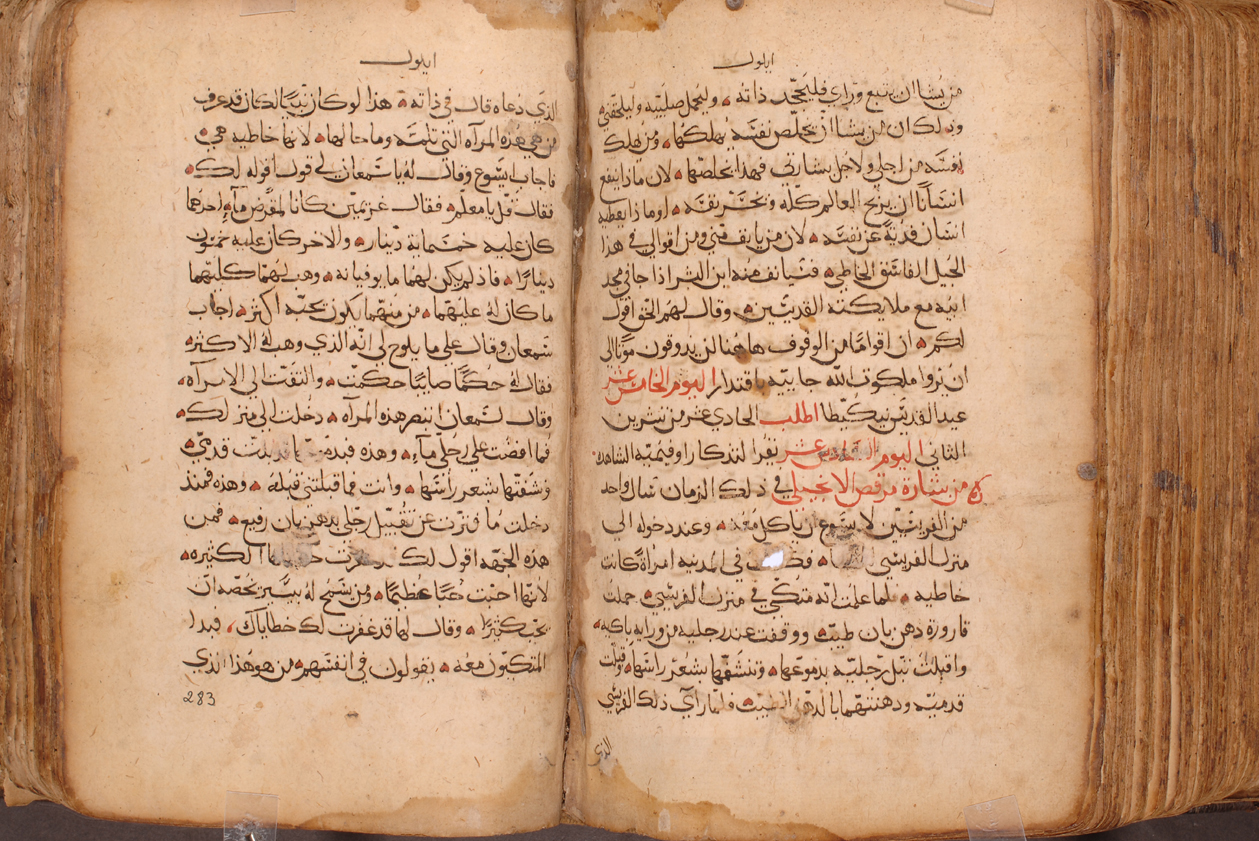 ايلول
من يشا ان يتبع وراي فليجحد ذاته ولیحمل صليبه وليلحقني
وذلك ان من يشا ان يخلص نفسه يهلكها ومن هلك
نفسه من اجلي ولاجل بشارتي فهذا يخلصها لان ماذا ينفع
انسانًا ان يربح العالم كله ويخسر نفسه او ماذا يعطيه
انسان فدية عن نفسه لان من يانف مني ومن اقوالي في هذا
الجيل الفاسق الخاطي فسيانف منه ابن البشر اذا جا في مجد
ابيه مع ملايكته القديسين وقال لهم الحق اقول
لكم ان اقوامًا من الوقوف هاهنا لن يذوقون موتًا الى
ان يروا ملكوت الله جاييه باقتدار اليوم الخامس عشر
عيد القديس نيكيطا اطلب الحادي عشر من تشرين
الثاني اليوم السادس عشر نقرا لتذكار اوفيميه الشاهده
من بشارة مرقص الانجيلي في ذلك الزمان سال واحد
من الفريسيين لايسوع ان ياكل معه وعند دخوله الى
منزل الفريسي في المدينه امراة كانت
خاطيه فلما علمت انه متكي في منزل الفريسي حملت
قارورة دهن بان طيب ووقفت عند رجليه من ورايه باكيه
واقبلت تبل رجليه بدموعها وتنشفها بشعر راسها وقبلت
قدميه ودهنتهما بالدهن الطيب فلما راي ذلك الفريسي
الذي
ايلول
الذي دعاه قال في ذاته هذا لو كان نبيًا لكان قد عرف
من هي هذه المرآه التي تلمسه وما حالها لانها خاطيه هي
فاجاب ايسوع وقال له يا سمعان لي قول اقوله لك
فقال قل يا معلم فقال غريمين كانا لمقرض ما احدهما
كان عليه خمسماية دينار والاخر كان عليه خمسون
دينارًا فاذ لم يكن لهما ما يوفيانه وهب لهما كليهما
ما كان له عليهما من منهما يكون يحبه اكثر اجاب
سمعان وقال على ما يلوح لي انه الذي وهب له الاكثر
فقال له حكمًا صايبًا حكمت والتفت الى الامرآه
وقال لسمعان انتصر هذه المرآه دخلت الى منزلك
فما افضت على رجلي مآء وهذه بلت قدمي
ونشفتها بشعر راسها وانت فما قبلتني قبله وهذه فمنذ
دخلت ما فترت عن تقبيل رجلي بدهن بان رفيع فمن
هذه الجهه اقول لك الكثيره
لانها احبت حبًا عظيمًا ومن يسمح له بيسير يخصه ان
يحب كثيرًا وقال لها قد غفرت لك خطاياك فبدا
المتكيون معه يقولون في انفسهم من هو هذا الذي
283